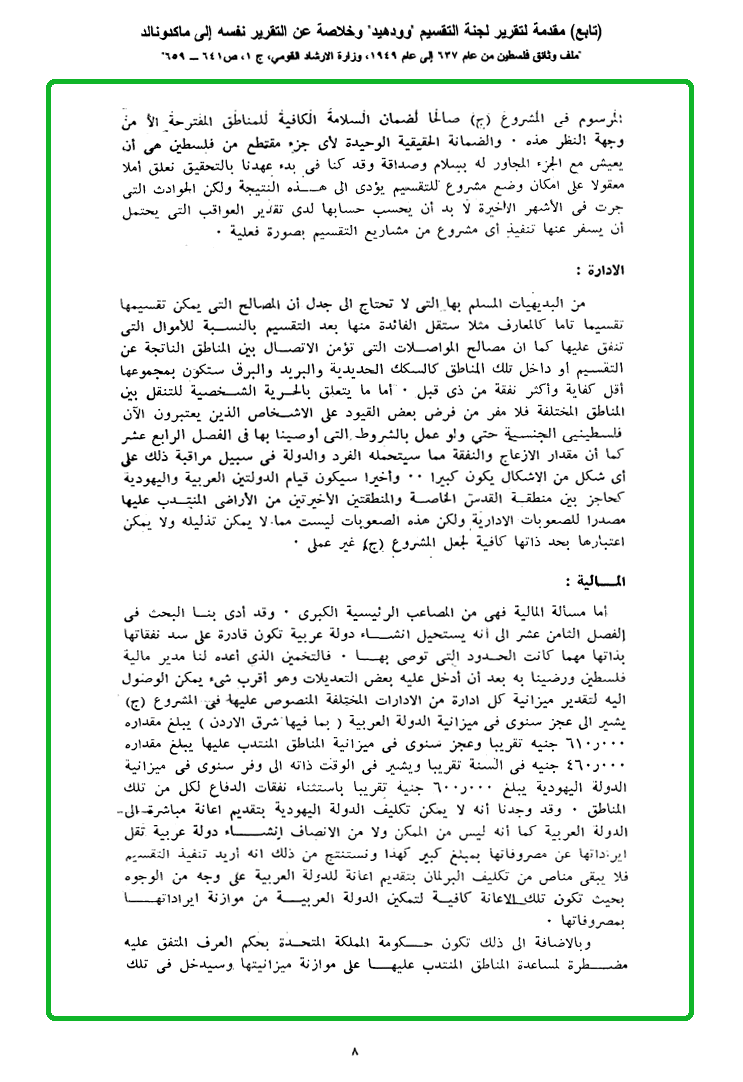 (تابع) مقدمة لتقرير لجنة التقسيم "وودهيد" وخلاصة عن التقرير نفسه إلى ماكدونالد
"ملف وثائق فلسطين من عام ٦٣٧ إلى عام ١٩٤٩، وزارة الارشاد القومي، ج ١، ص ٦٤١ ــ ٦٥٩"
المرسوم فى المشروع (ج) صالحا لضمان السلامة الكافية للمناطق المقترحة الأ من
وجهة النظر هذه ٠ والضمانة الحقيقية الوحيدة لأى جزء مقتطع من فلسطين هى أن
يعيش مع الجزء المجاور له بسلام وصداقة وقد كنا فى بدء عهدنا بالتحقيق نعلق أملا
معقولا على امكان وضع مشروع للتقسيم يؤدى الى هـــذه النتيجة ولكن الحوادث التى
جرت فى الأشهر الأخيرة لا بد أن يحسب حسابها لدى تقدير العواقب التى يحتمل
أن يسفر عنها تنفيذ أى مشروع من مشاريع التقسيم بصورة فعلية ٠
الادارة :
من البديهيات المسلم بها التى لا تحتاج الى جدل أن المصالح التى يمكن تقسيمها
تقسيما تاما كالمعارف مثلا ستقل الفائدة منها بعد التقسيم بالنســبة للأموال التى
تنفق عليها كما ان مصالح المواصلات التى تؤمن الاتصال بين المناطق الناتجة عن
التقسيم أو داخل تلك المناطق كالسكك الحديدية والبريد والبرق ستكون بمجموعها
أقل كفاية وأكثر نفقة من ذى قبل ٠ أما ما يتعلق بالحرية الشـخصية للتنقل بين
المناطق المختلفة فلا مفر من فرض بعض القيود على الاشـخاص الذين يعتبرون الآن
فلسطينيى الجنسـية حتى ولو عمل بالشروط التى أوصينا بها فى الفصل الرابع عشر
كما أن مقدار الازعاج والنفقة مما سيتحمله الفرد والدولة فى سبيل مراقبة ذلك على
أى شكل من الاشكال يكون كبيرا ٠٠ وأخيرا سيكون قيام الدولتين العربية واليهودية
كحاجز بين منطقـة القدس الخاصـة والمنطقتين الأخيرتين من الأراضى المنتدب عليها
مصدرا للصعوبات الادارية ولكن هذه الصعوبات ليست مما لا يمكن تذليله ولا يمكن
اعتبارها بحد ذاتها كافية لجعل المشروع (ج) غير عملى ٠
المــالية :
أما مسألة المالية فهى من المصاعب الرئيسية الكبرى ٠ وقد أدى بنـا البحث فى
الفصل الثامن عشر الى أنه يستحيل انشـــاء دولة عربية تكون قادرة على سد نفقاتها
بذاتها مهما كانت الحدود التى توصى بهــا ٠ فالتخمين الذى أعده لنا مدير مالية
فلسطين ورضينا به بعد أن أدخل عليه بعض التعديلات وهو أقرب شىء يمكن الوصول
اليه لتقدير ميزانية كل ادارة من الادارات المختلفة المنصوص عليها فى المشروع (ج)
يشير الى عجز سنوى فى ميزانية الدولة العربية ( بما فيها شرق الاردن ) يبلغ مقداره
٦١٠٫٠٠٠ جنيه تقريبا وعجز سنوى فى ميزانية المناطق المنتدب عليها يبلغ مقداره
٤٦٠٫٠٠٠ جنيه فى السنة تقريبا ويشير فى الوقت ذاته الى وفر سنوى فى ميزانية
الدولة اليهودية يبلغ ٦٠٠٫٠٠٠ جنية تقريبا باستثناء نفقات الدفاع لكل من تلك
المناطق ٠ وقد وجدنا أنه لا يمكن تكليف الدولة اليهودية بتقديم اعانة مباشرة الى
الدولة العربية كما أنه ليس من الممكن ولا من الانصاف إنشـــاء دولة عربية تقل
ايراداتها عن مصروفاتها بمبلغ كبير كهذا ونستنتج من ذلك انه أريد تنفيذ التقسيم
فلا يبقى مناص من تكليف البرلمان بتقديم اعانة للدولة العربية على وجه من الوجوه
بحيث تكون تلك الاعانة كافيـة لتمكين الدولة العربيــة من موازنة ايراداتهـــا
بمصروفاتها ٠
وبالاضافة الى ذلك تكون حـكومة المملكة المتحـدة بحكم العرف المتفق عليه
مضـطرة لمساعدة المناطق المنتدب عليهــا على موازنة ميزانيتها وسيدخل فى تلك
٨